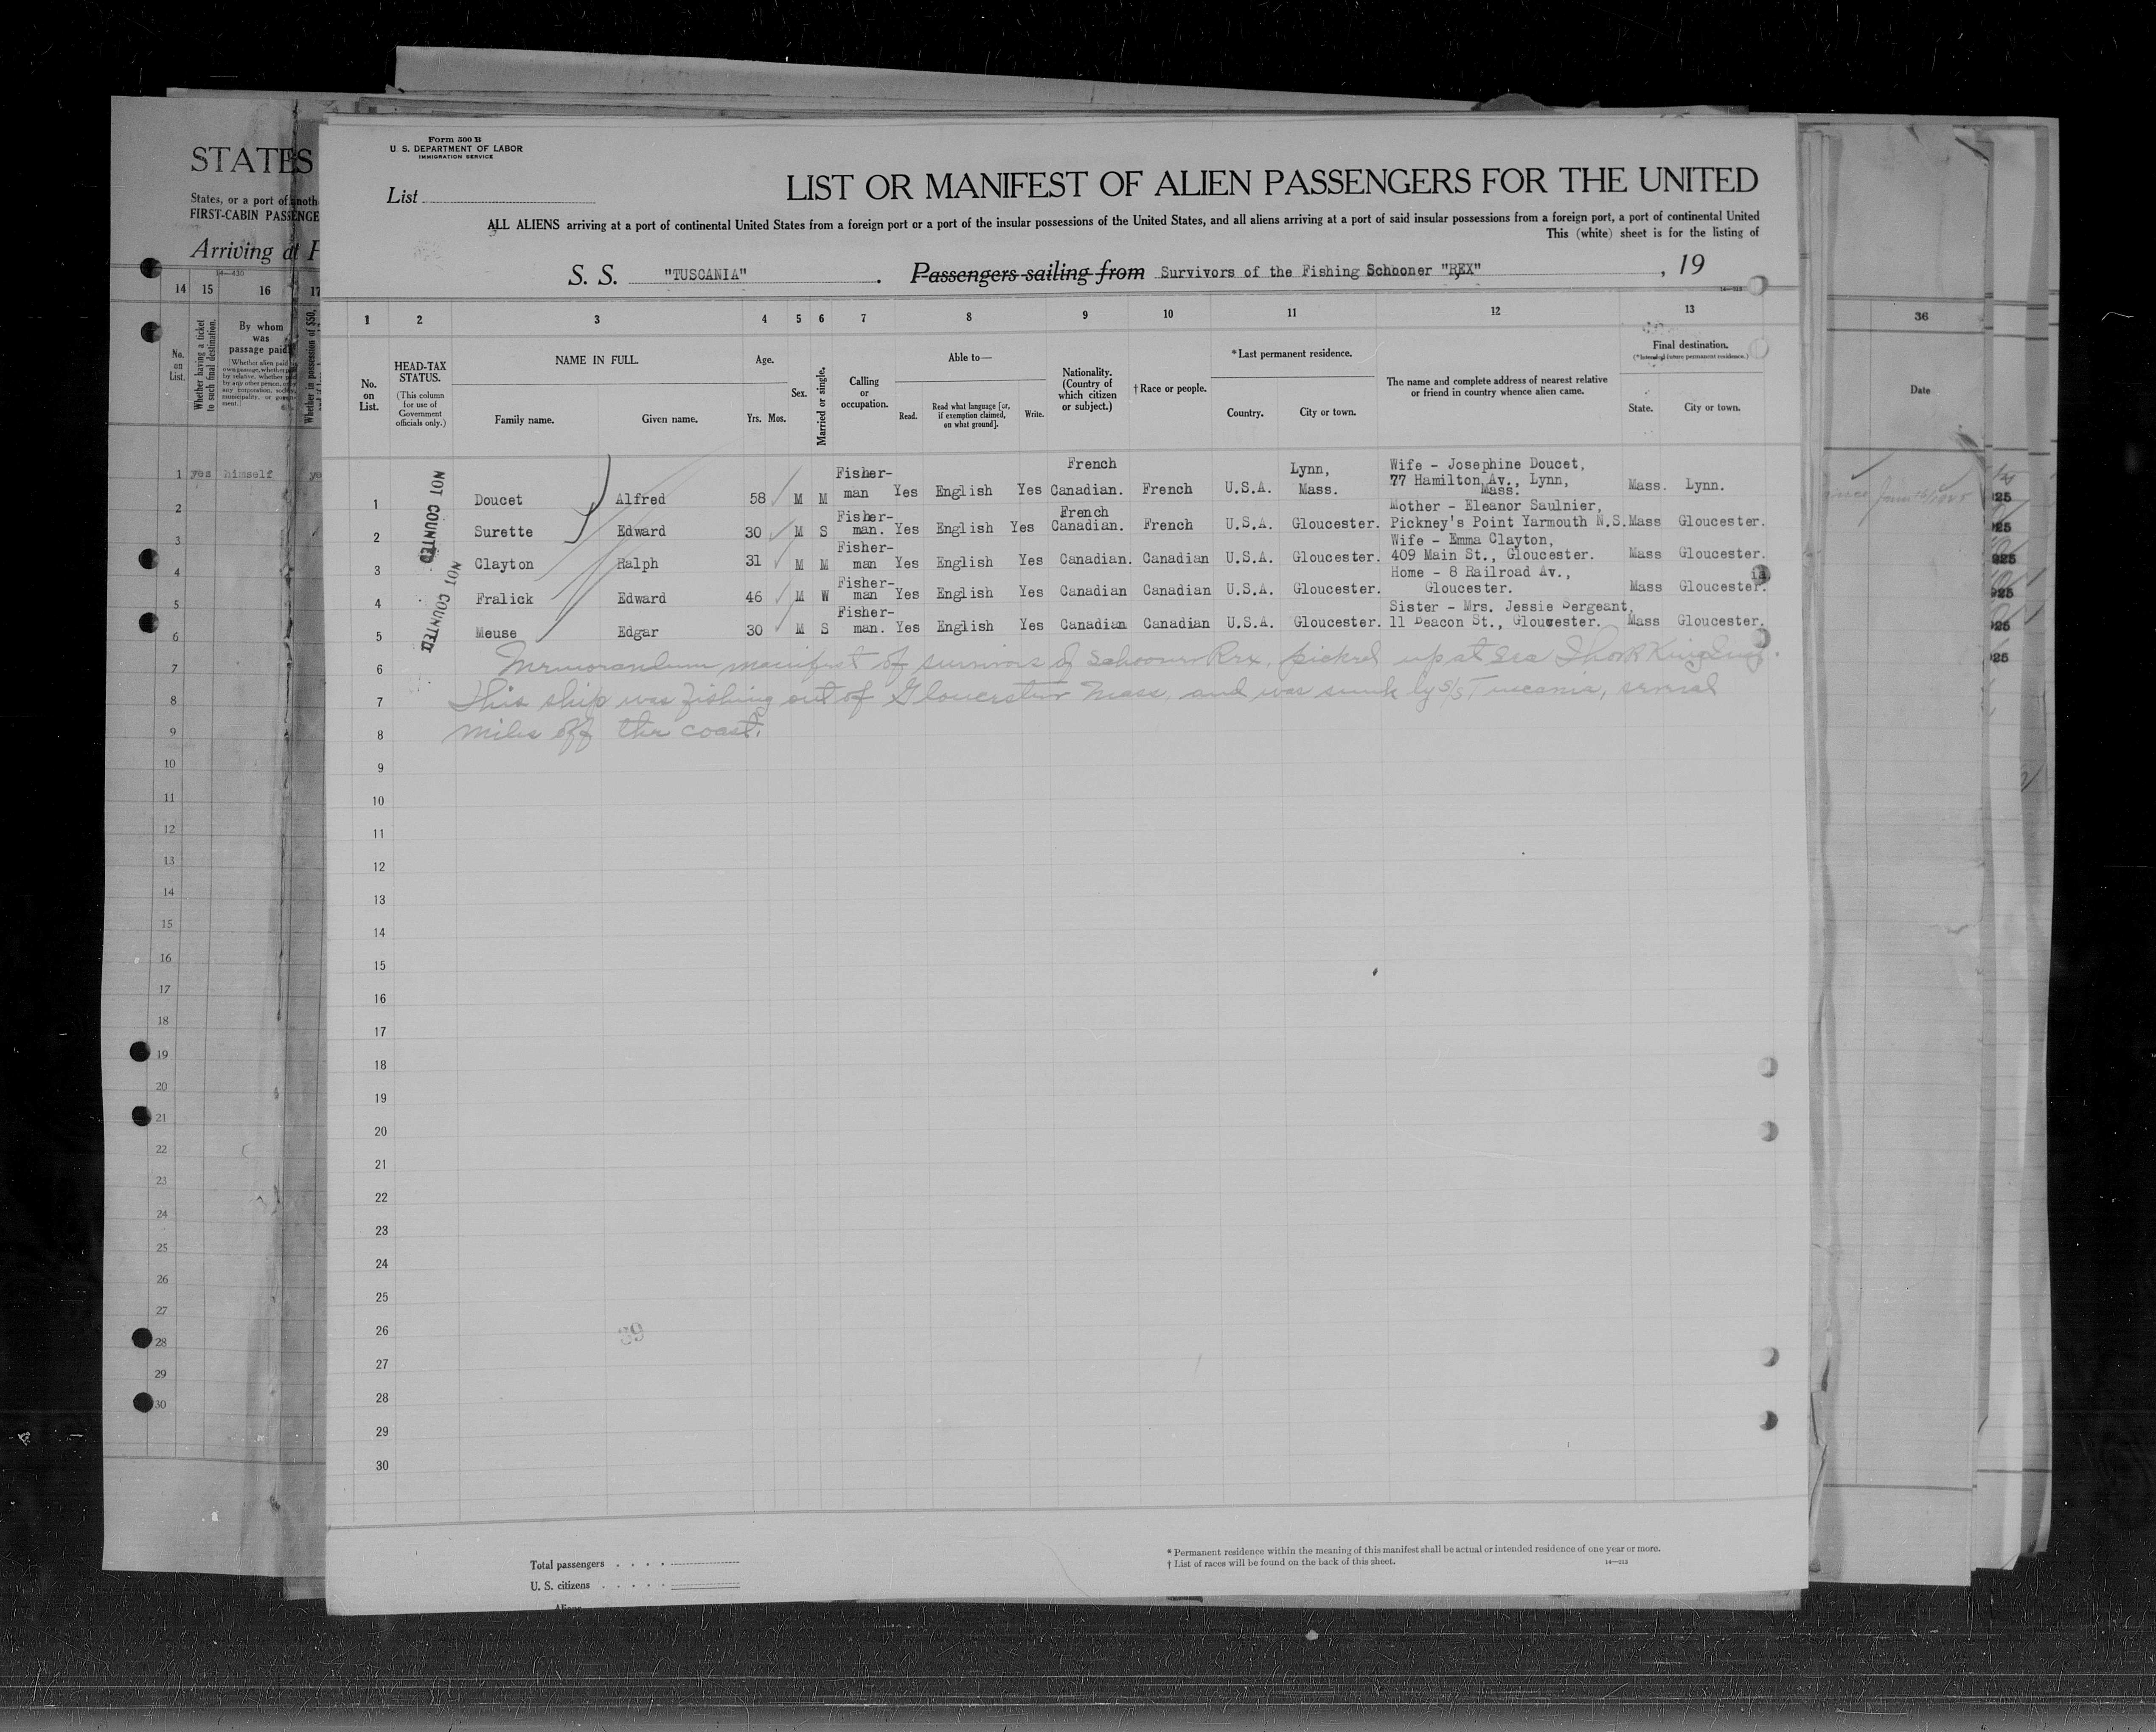 Form 500 B
U. S. DEPARTMENT OF LABOR
IMMIGRATION SERVICE
List
LIST OR MANIFEST OF ALIEN PASSENGERS FOR THE UNITED
ALL ALIENS arriving at a port of continental United States from a foreign port or a port of the insular possessions of the United States, and all aliens arriving at a port of said insular possessions from a foreign port, a port of continental United
This (white) sheet is for the listing of
S. S. "TUSCANIA". Passengers sailing from Survivors of the Fishing Schooner "REX", 19
1 2 3 4 5 6 7 8 9 10 11 12 13
No. on List.
HEAD-TAX STATUS.
(This column for use of Government officials only.)
NAME IN FULL.
Family name. Given name.
Age.
Yrs. Mos.
Sex.
Married or single.
Calling or occupation.
Able to—
Read. Read what language [or, if exemption claimed, on what ground]. Write.
Nationality. (Country of which citizen or subject.)
† Race or people.
* Last permanent residence.
Country. City or town.
The name and complete address of nearest relative or friend in country whence alien came.
Final destination.
(* Intended future permanent residence.)
State. City or town.
NOT COUNTED
NOT COUNTED
1 Doucet Alfred 58 M M Fisher-man Yes English Yes French Canadian. French U.S.A. Lynn, Mass. Wife - Josephine Doucet, 77 Hamilton Av., Lynn, Mass. Mass. Lynn.
2 Surette Edward 30 M S Fisher-man. Yes English Yes French Canadian. French U.S.A. Gloucester. Mother - Eleanor Saulnier, Pickney's Point Yarmouth N.S. Mass Gloucester.
3 Clayton Ralph 31 M M Fisher-man Yes English Yes Canadian. Canadian U.S.A. Gloucester. Wife - Emma Clayton, 409 Main St., Gloucester. Mass Gloucester.
4 Fralick Edward 46 M W Fisher-man Yes English Yes Canadian Canadian U.S.A. Gloucester. Home - 8 Railroad Av., Gloucester. Mass Gloucester.
5 Meuse Edgar 30 M S Fisher-man. Yes English Yes Canadian Canadian U.S.A. Gloucester. Sister - Mrs. Jessie Sergeant, 11 Beacon St., Gloucester. Mass Gloucester.
6 Memorandum manifest of survivors of Schooner Rex, picked up at sea
7 This ship was fishing out of Gloucester Mass, and was sunk by S/S Tuscania, several
8 miles off the coast.
9
10
11
12
13
14
15
16
17
18
19
20
21
22
23
24
25
26
27
28
29
30
39
Total passengers
U. S. citizens
* Permanent residence within the meaning of this manifest shall be actual or intended residence of one year or more.
† List of races will be found on the back of this sheet.
STATES
States, or a port of
FIRST-CABIN
Arriving at
14 15 16 17
No. on List.
Whether having a ticket to such final destination.
By whom was passage paid?
Whether in possession of $50,
1 yes himself
2
3
4
5
6
7
8
9
10
11
12
13
14
15
16
17
18
19
20
21
22
23
24
25
26
27
28
29
30
36
Date